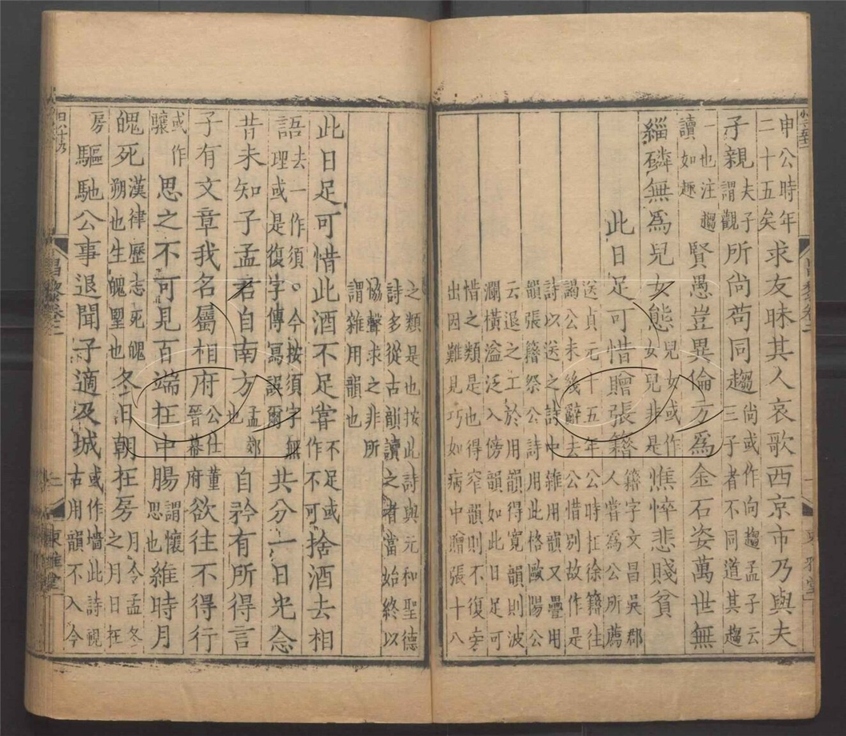 申公時年二十五矣求友昧其人哀歌西京市乃與夫
子親夫子謂觀所尚苟同趨尚或作向趨孟子云三子者不同道其趨
一也注趨讀如趣賢愚豈異倫方為金石姿萬世無
緇磷無為兒女態兒女或作女兒非是憔悴悲賤貧
此日足可惜贈張籍籍字文昌吳郡人嘗為公所薦
送貞元十五年公時在徐籍往
謁公未幾辭去公惜別故作是
詩以送之詩中雜用韻又疊用
韻張籍祭公詩用此格歐陽公
云退之工於用韻得寬韻則波
瀾橫溢泛入傍韻如此日足可
惜之類是也得窄韻則不復旁
出因難見巧如病中贈張十八
之類是也按此詩與元和聖德
詩多從古韻讀之者當始終以
協聲求之非所
謂雜用韻也
此日足可惜此酒不足嘗不足或作不可捨酒去相
語去一作須○今按須字無理或是復字傳寫誤爾共分一日光念
昔未知子孟君自南方孟郊也自矜有所得言
子有文章我名屬相府公仕董晉幕府欲往不得行
或作驤思之不可見百端在中腸謂懷思也維時月
魄死漢律歷志死魄朔也生魄朢也冬日朝在房月令孟冬之月日在
房驅馳公事退聞子適及城或作墻此詩視古用韻不入今
昌黎卷二
東雅堂